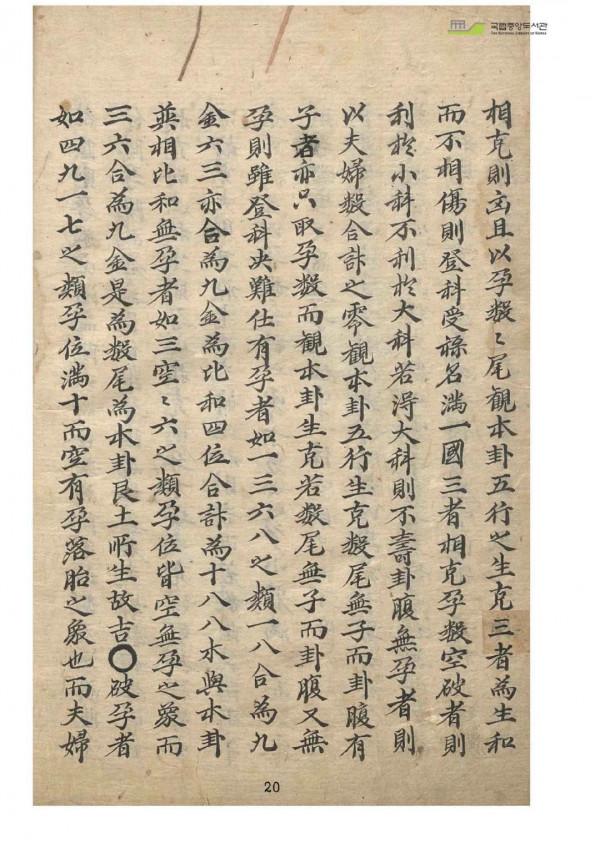 국립중앙도서관
THE NATIONAL LIBRARY OF KOREA
相克則凶且以孕數〻尾觀本卦五行之生克三者為生和
而不相傷則登科受祿名滿一國三者相克孕數空破者則
利於小科不利於大科若得大科則不壽卦腹無孕者則
以夫婦數合計之零觀本卦五行生克數尾無子而卦腹有
子者亦只取孕數而觀本卦生克若數尾無子而卦腹又無
孕則雖登科决難仕有孕者如一三六八之類一八合為九
金六三亦合為九金為比和四位合計為十八八木與本卦
巽相比和無孕者如三空〻六之類孕位皆空無孕之象而
三六合為九金是為數尾為本卦艮土所生故吉〇破孕者
如四九一七之類孕位滿十而空有孕落胎之象也而夫婦
20